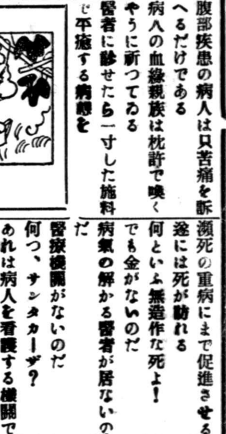 腹部疾患の病人は只苦痛を訴
へるだけである
病人の血縁親族は枕許で嘆く
やうに祈つてゐる
醫者に診せたら一寸した施料
で平癒する病態を
瀕死の重病にまで促進させる
遂には死が訪れる
何といふ無造作な死よ!
でも金がないのだ
病氣の解かる醫者が居ないの
だ
醫療機關がないのだ
何つ、サンタカーザ?
あれは病人を看護する機關で